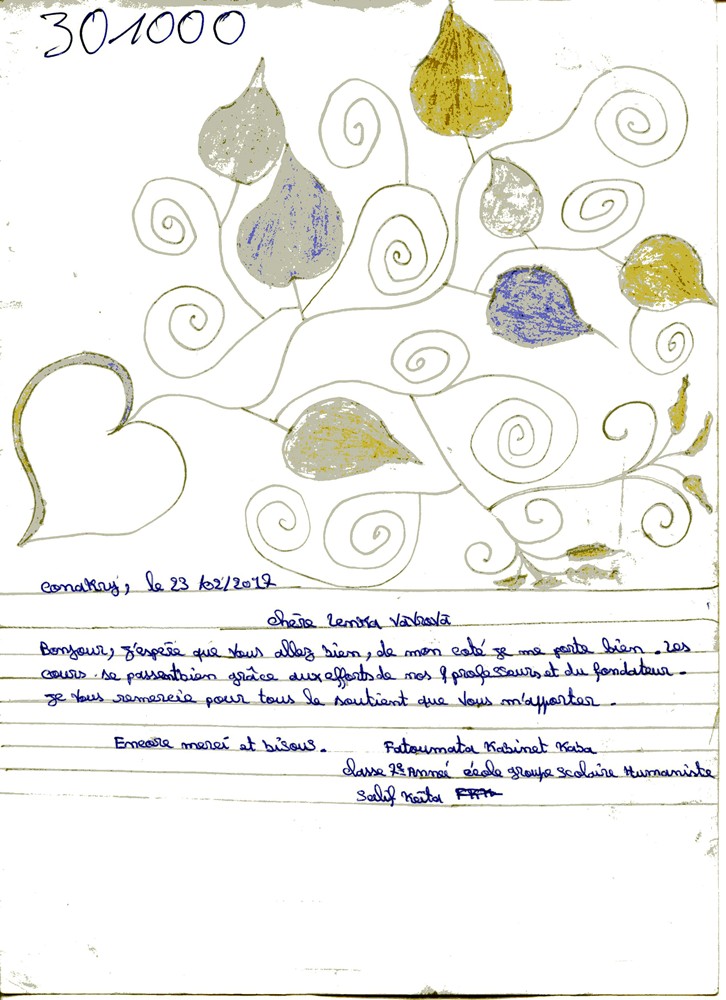 301000
Conakry, le 23 /02/2017
chère Lenka Vavrová
Bonjour, j'espère que vous allez bien, de mon coté je me porte bien. Les
cours se passent bien grâce aux efforts de nos professeurs et du fondateur.
je vous remercie pour tous le soutient que vous m'apporter.
Encore merci et bisous. Fatoumata Kabinet Kaba
classe 7e Année école groupe scolaire Humaniste
Salif Keita